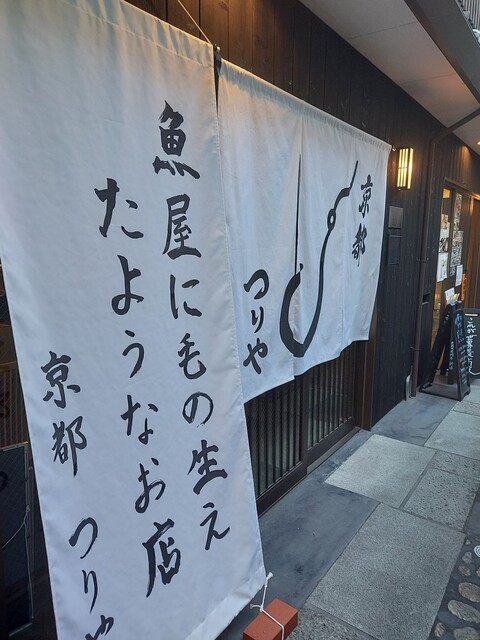 魚屋に毛の生え
たようなお店
京都 つりや
京都
つりや